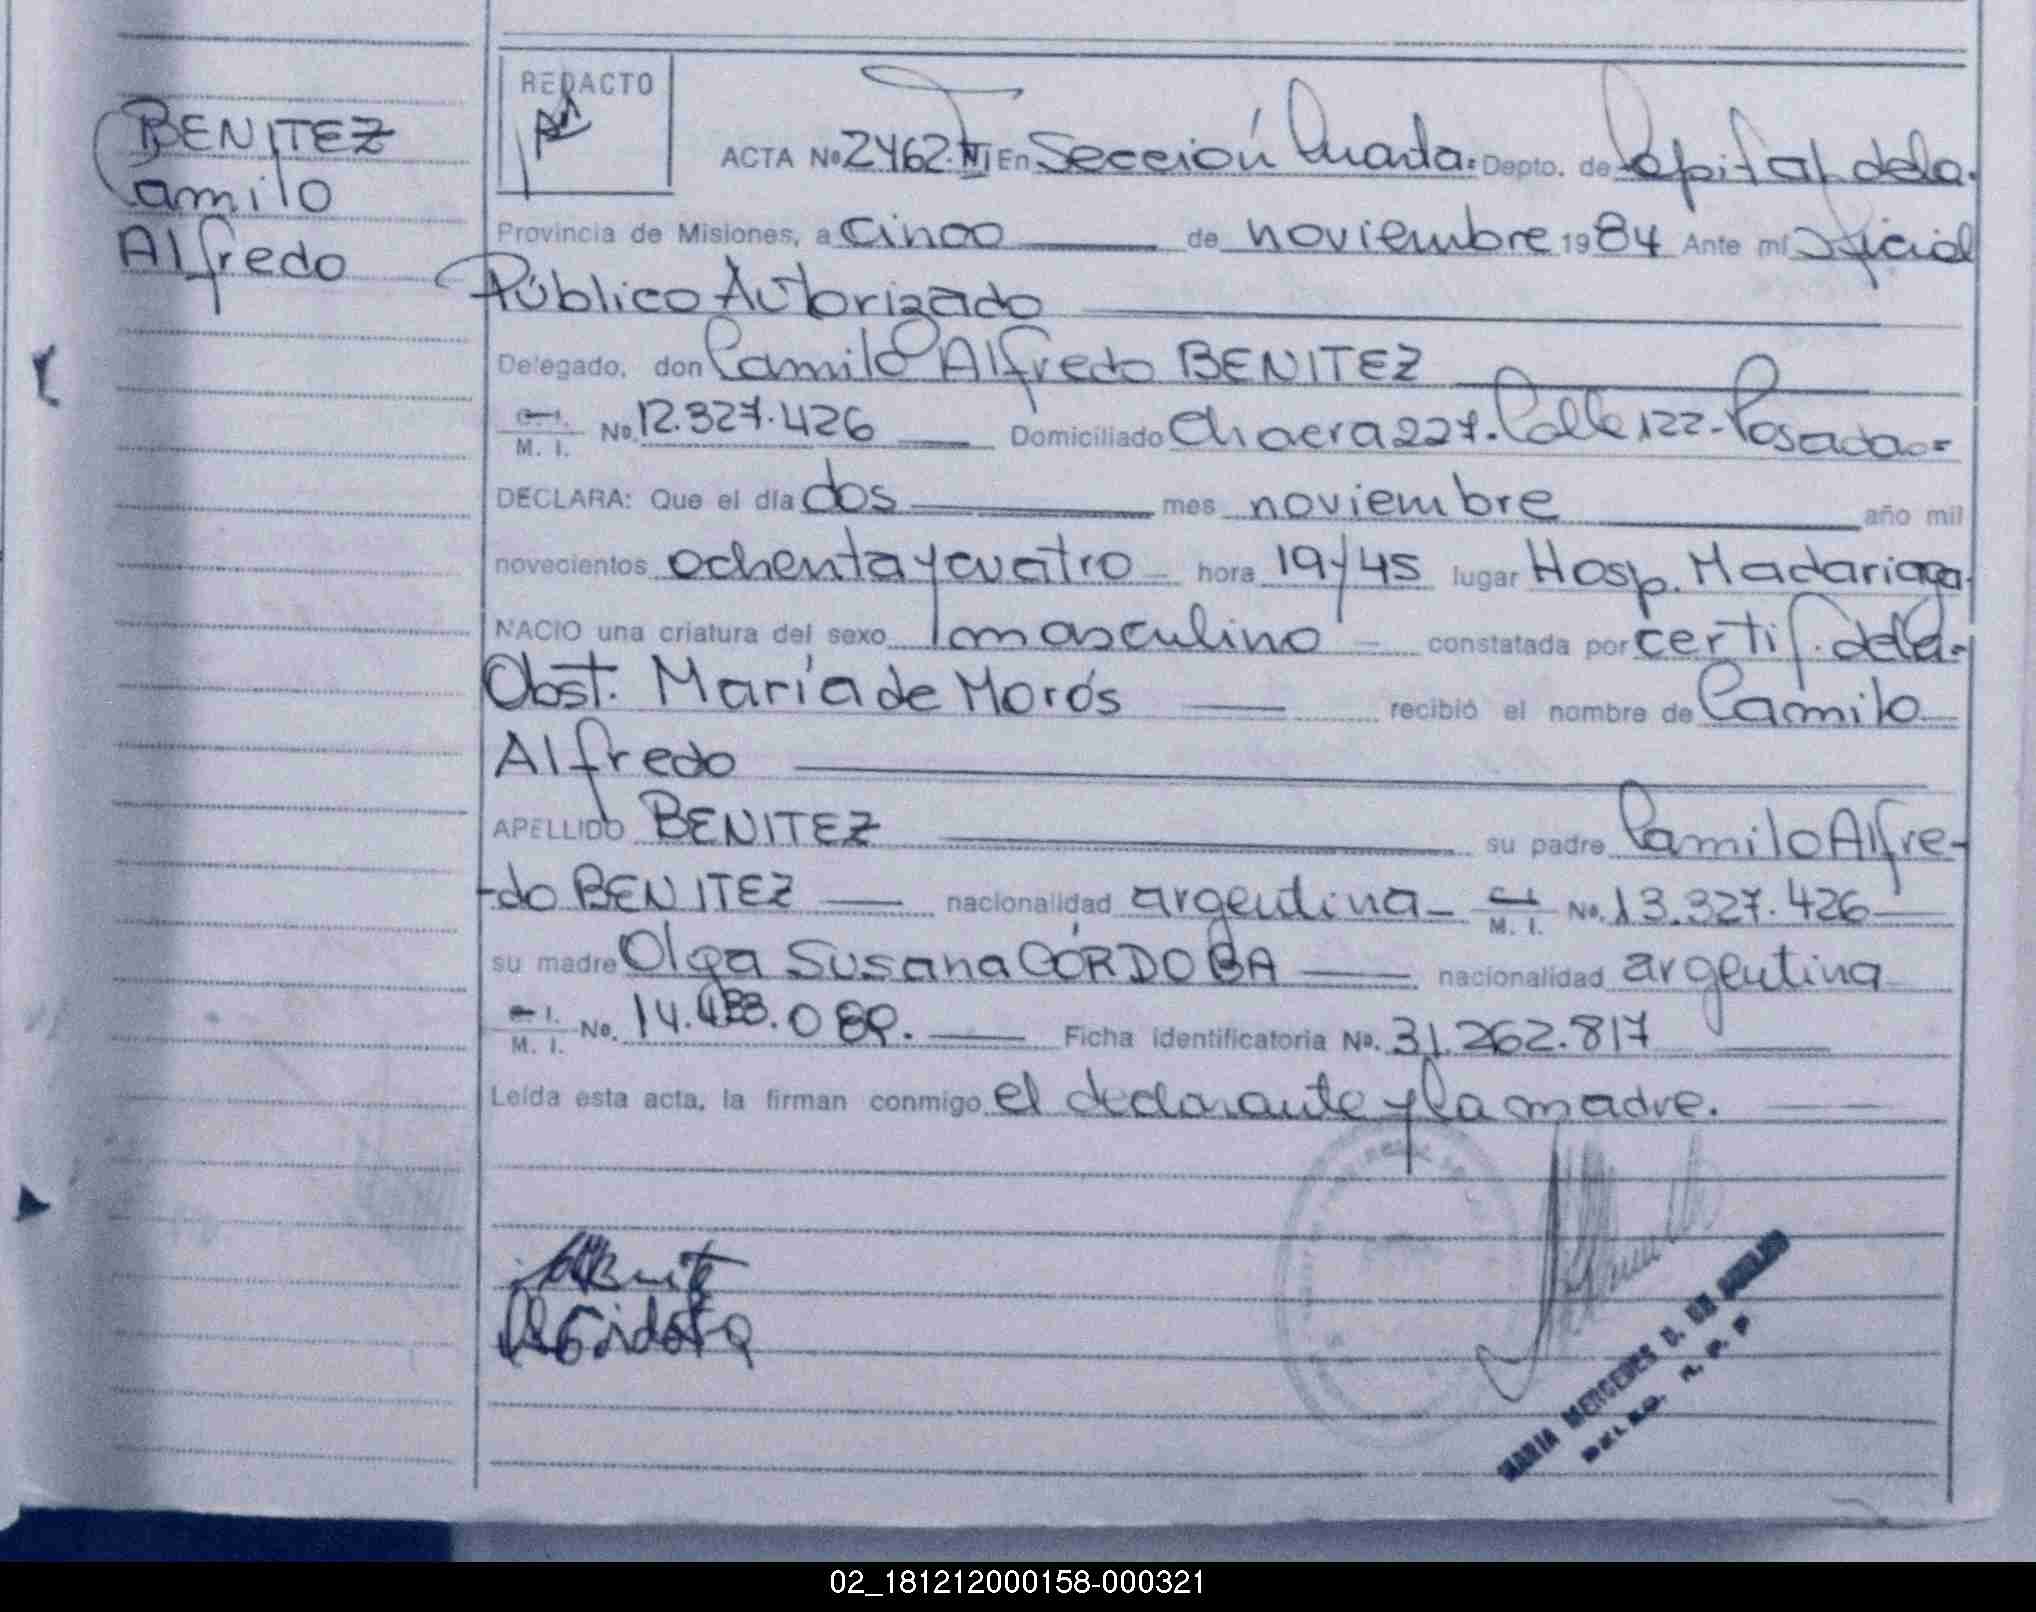 BENITEZ
Camilo
Alfredo
REDACTO
ACTA Nº 2462 En Sección Cuarta. Depto. de Capital dela
Provincia de Misiones, a cinco de noviembre 1984 Ante mí Oficial
Público Autorizado
Delegado, don Camilo Alfredo BENITEZ
C. I. M. I. No. 12.327.426 Domiciliado Chacra 227. Calle 122- Posadas
DECLARA: Que el día dos mes noviembre año mil
novecientos ochenta y cuatro hora 19y45 lugar Hosp. Madariaga
NACIO una criatura del sexo masculino constatada por certif. dela
Obst. María de Morós recibió el nombre de Camilo
Alfredo
APELLIDO BENITEZ su padre Camilo Alfre-
-do BENITEZ nacionalidad argentina C. I. M. I. No. 13.327.426
su madre Olga Susana CÓRDOBA nacionalidad argentina
C. I. M. I. No. 14. Ficha identificatoria No. 31.262.817
Leída esta acta, la firman conmigo el declarante y la madre.
MARIA MERCEDES D. DE
02_181212000158-000321